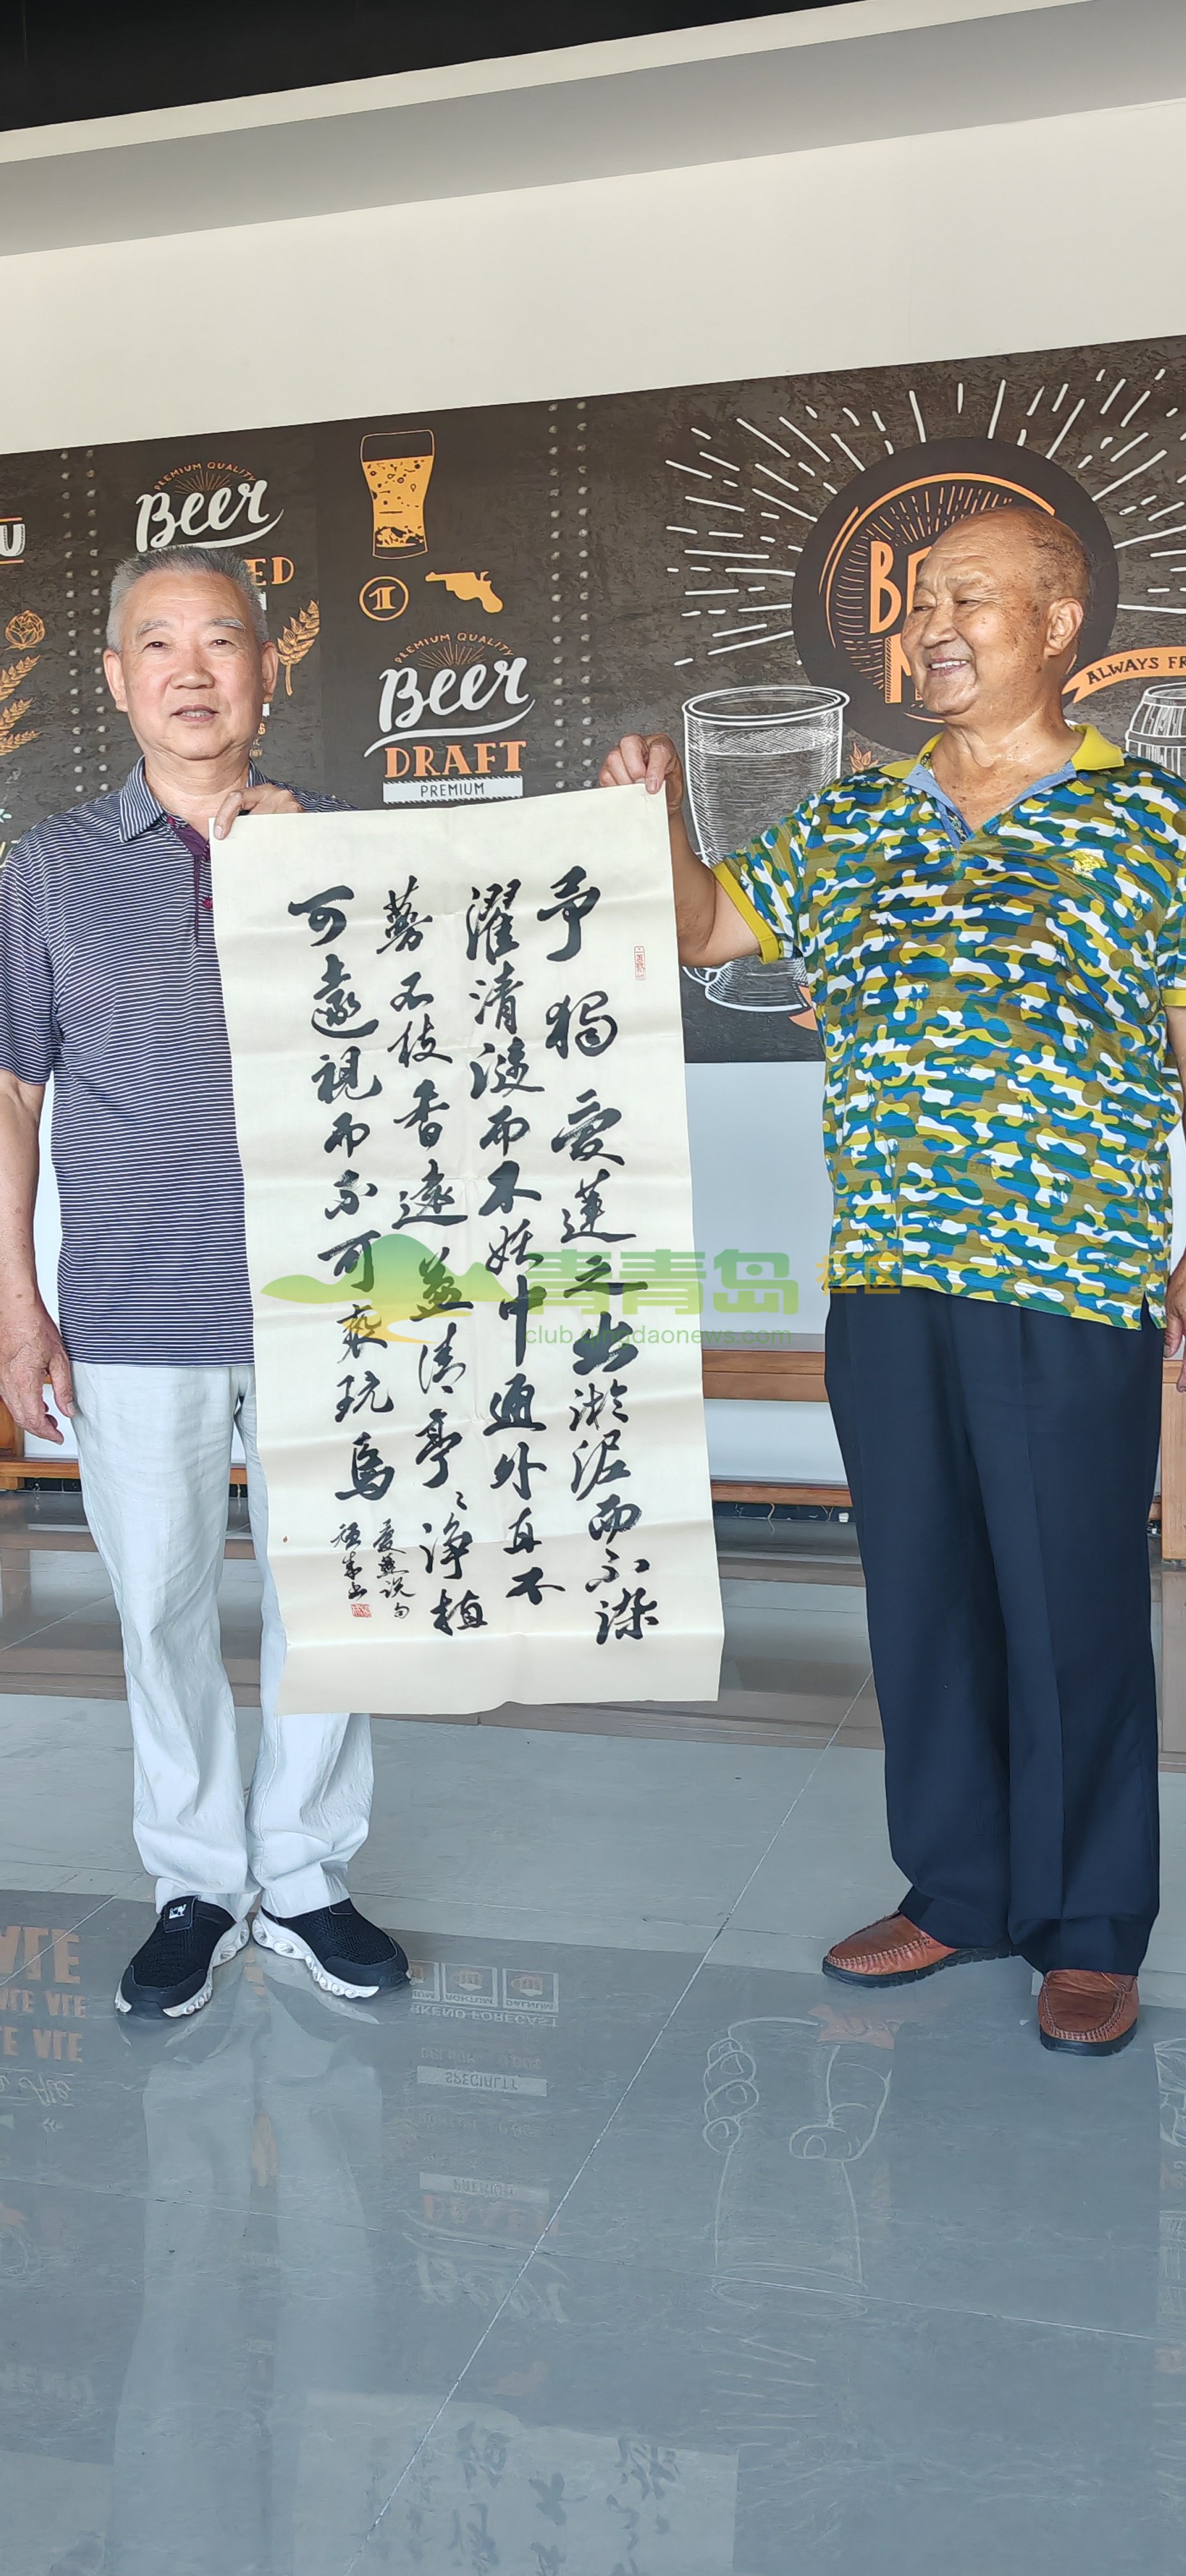 PREMIUM QUALITY
Beer
PREMIUM QUALITY
Beer
DRAFT
PREMIUM
ALWAYS FR
予獨愛蓮之出淤泥而不染
濯清漣而不妖中通外直不
蔓不枝香遠益清亭〻淨植
可遠視而不可褻玩焉
愛蓮说句
青青岛 社区
club.qingdaonews.com